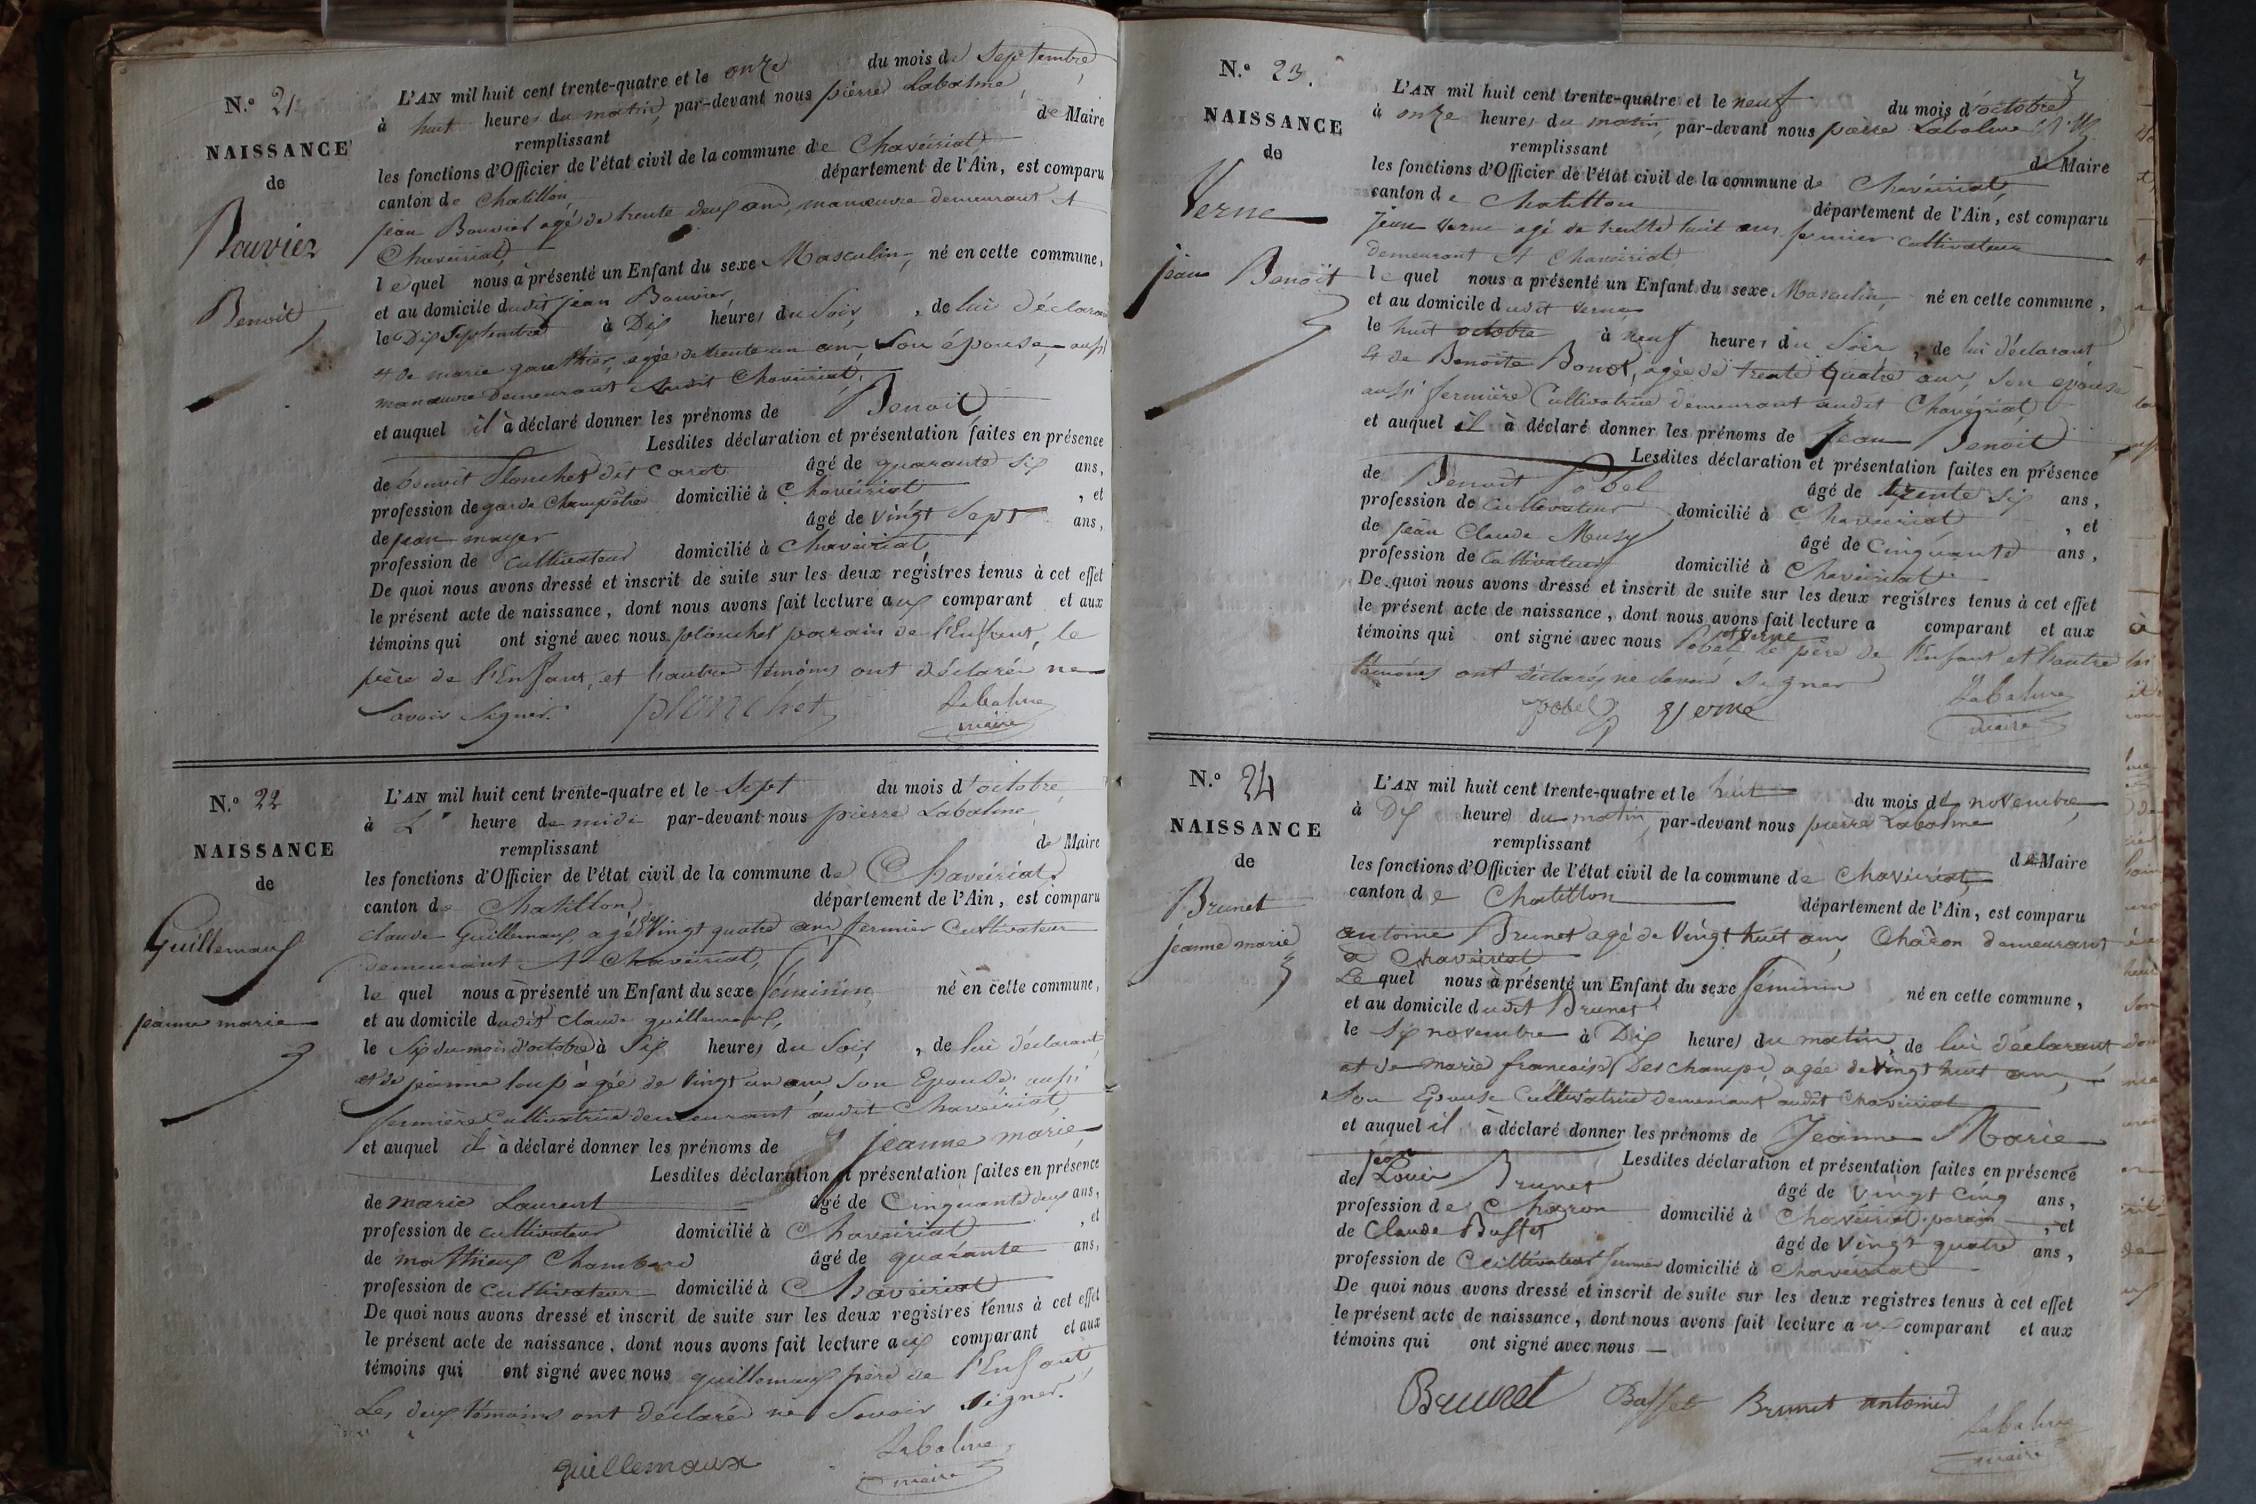 N.º 21
NAISSANCE
de
Bouvier
Benoit
L'AN mil huit cent trente-quatre et le onze du mois de septembre
à huit heures du matin, par-devant nous pierre Labalme,
remplissant de Maire
les fonctions d'Officier de l'état civil de la commune de Chaveiriat
canton de Chatillon, département de l'Ain, est comparu
jean Bouvier agé de trente deux ans, manœuvre demeurant A
Chaveiriat,
lequel nous a présenté un Enfant du sexe Masculin, né en cette commune,
et au domicile dudit jean Bouvier,
le Dix septembre à Dix heures du Soir, de lui déclarant
et de marie gauthier, agée de trente un ans, Son épouse, aussi
manœuvre demeurant audit Chaveiriat,
et auquel il à déclaré donner les prénoms de Benoit
Lesdites déclaration et présentation faites en présence
de benoit Plonchet dit Carot âgé de quarante six ans,
profession de garde Champêtre domicilié à Chaveiriat, et
de jean mayer âgé de vingt Sept ans,
profession de Cultivateur domicilié à Chaveiriat,
De quoi nous avons dressé et inscrit de suite sur les deux registres tenus à cet effet
le présent acte de naissance, dont nous avons fait lecture aux comparant et aux
témoins qui ont signé avec nous plonchet parain de l'Enfant, le
père de l'Enfant, et l'autre témoins ont déclaré ne
savoir signer. plonchet Labalme
maire
N.º 22
NAISSANCE
de
Guillemaux
jeanne marie
L'AN mil huit cent trente-quatre et le Sept du mois d'octobre
à heure de midi par-devant nous pierre Labalme,
remplissant de Maire
les fonctions d'Officier de l'état civil de la commune de Chaveiriat,
canton de Chatillon département de l'Ain, est comparu
claude Guillemaux, agé de Vingt quatre ans, fermier Cultivateur
demeurant A Chaveiriat,
le quel nous à présenté un Enfant du sexe féminin, né en cette commune,
et au domicile dudit claude guillemaux,
le Six du mois d'octobre à Six heures du Soir, de lui déclarant,
et de jeanne loup agée de Vingt un ans, Son Epouse aussi
fermière Cultivatrice demeurant audit Chaveiriat,
et auquel il à déclaré donner les prénoms de jeanne marie
Lesdites déclaration et présentation faites en présence
de marie Laurent âgé de Cinquante deux ans,
profession de cultivateur domicilié à Chaveiriat, et
de mathieux Chambard âgé de quarante ans,
profession de Cultivateur domicilié à Chaveiriat
De quoi nous avons dressé et inscrit de suite sur les deux registres tenus à cet effet
le présent acte de naissance, dont nous avons fait lecture aux comparant et aux
témoins qui ont signé avec nous guillemaux père de l'Enfant,
Les deux témoins ont déclaré ne Savoir signer.
guillemaux Labalme
maire
N.º 23.
NAISSANCE
de
Verne
jean Benoit
L'AN mil huit cent trente-quatre et le neuf du mois d'octobre
à onze heures du matin, par-devant nous pierre Labalme
remplissant de Maire
les fonctions d'Officier de l'état civil de la commune de Chaveiriat,
canton de Chatillon département de l'Ain, est comparu
jean Verne agé de trente huit ans fermier cultivateur
demeurant A Chaveiriat
le quel nous a présenté un Enfant du sexe Masculin, né en cette commune,
et au domicile dudit Verne
le huit octobre à neuf heures du Soir, de lui déclarant
et de Benoite Bonot, agée de trente quatre ans, Son epouse
aussi fermière Cultivatrice demeurant audit Chaveiriat
et auquel il à déclaré donner les prénoms de Jean Benoit
Lesdites déclaration et présentation faites en présence
de Benoit Pobel âgé de trente six ans,
profession de Cultivateur domicilié à Chaveiriat, et
de jean Claude Musy âgé de Cinquante ans,
profession de Cultivateur domicilié à Chaveiriat
De quoi nous avons dressé et inscrit de suite sur les deux registres tenus à cet effet
le présent acte de naissance, dont nous avons fait lecture a comparant et aux
témoins qui ont signé avec nous Pobel et Verne le père de l'Enfant et l'autre
témoins ont déclaré ne Savoir Signer
pobel Verne Labalme
maire
N.º 24
NAISSANCE
de
Brunet
jeanne marie
L'AN mil huit cent trente-quatre et le huit du mois de novembre
à Dix heures du matin, par-devant nous pierre Labalme
remplissant de Maire
les fonctions d'Officier de l'état civil de la commune de Chaveiriat,
canton de Chatillon département de l'Ain, est comparu
antoine Brunet agé de Vingt huit ans, Charon demeurant
à Chaveiriat
Le quel nous à présenté un Enfant du sexe féminin né en cette commune,
et au domicile dudit Brunet
le Six novembre à Dix heures du matin, de lui déclarant
et de marie francoise Deschamps, agée de Vingt huit ans,
Son Epouse Cultivatrice demeurant audit Chaveiriat
et auquel il à déclaré donner les prénoms de Jeanne Marie
Lesdites déclaration et présentation faites en présence
de jean Louis Brunet âgé de Vingt Cinq ans,
profession de Charon domicilié à Chaveiriat, parain, et
de Claude Buffet âgé de Vingt quatre ans,
profession de Cultivateur fermier domicilié à Chaveiriat
De quoi nous avons dressé et inscrit de suite sur les deux registres tenus à cet effet
le présent acte de naissance, dont nous avons fait lecture aux comparant et aux
témoins qui ont signé avec nous
Brunet Buffet Brunet antoine
Labalme
maire